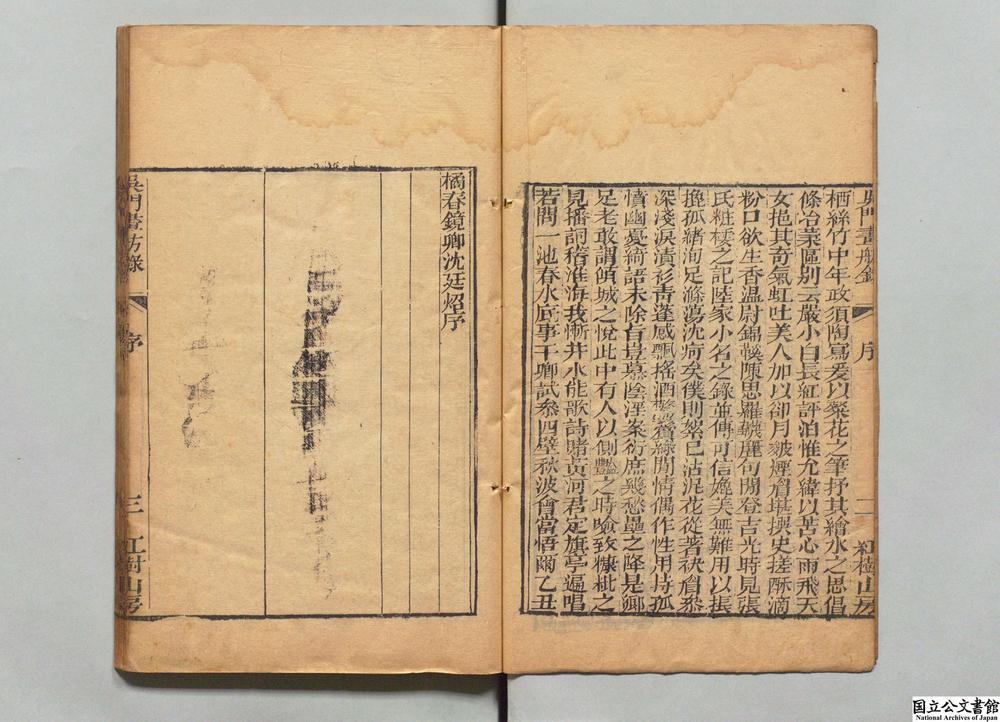 吳門畫舫錄 序 二 紅樹山房
栖絲竹中年政須陶寫爰以粲花之筆抒其繪水之思倡
條冶葉區别云嚴小白長紅評泊惟允緯以苦心雨飛天
女挹其奇氣虹吐美人加以卻月皴煙眉堪撰史搓酥滴
粉口欲生香溫尉錦鞵陳思羅韈麗句閒登吉光時見張
氏粧樓之記陸家小名之錄並傳可信媲美無難用以振
挽孤緒洵足滌蕩沈疴矣僕則絮已沾泥花從著袂眉㷊
深淺淚漬衫青蓬感飄搖酒 鬢綠閒情偶作性用持孤
憤幽憂綺語未除旨豈慕陰淫案衍庶幾愁壘之降是鄉
足老敢謂傾城之悅此中有人以側豔之時喻致糠粃之
見播詞稽淮海我慚井水能歌詩賭黃河君定旗亭遍唱
若問一池春水底事干卿試參四壁秋波會當悟爾乙丑
橘春鏡卿沈廷炤序
吳門畫舫錄 序 三 紅樹山房
国立公文書館
National Archives of Japan